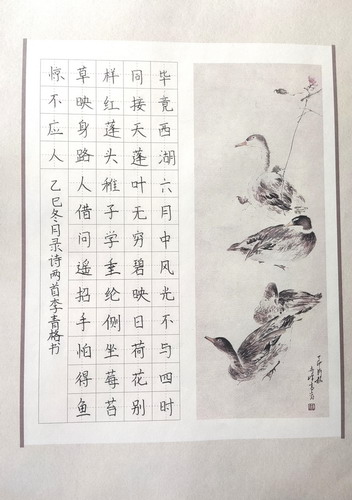 毕竟西湖六月中风光不与四时
同接天蓬叶无穷碧映日荷花别
样红莲头稚子学垂纶侧坐莓苔
草映身路人借问遥招手怕得鱼
惊不应人 乙巳冬月录诗两首李青格书